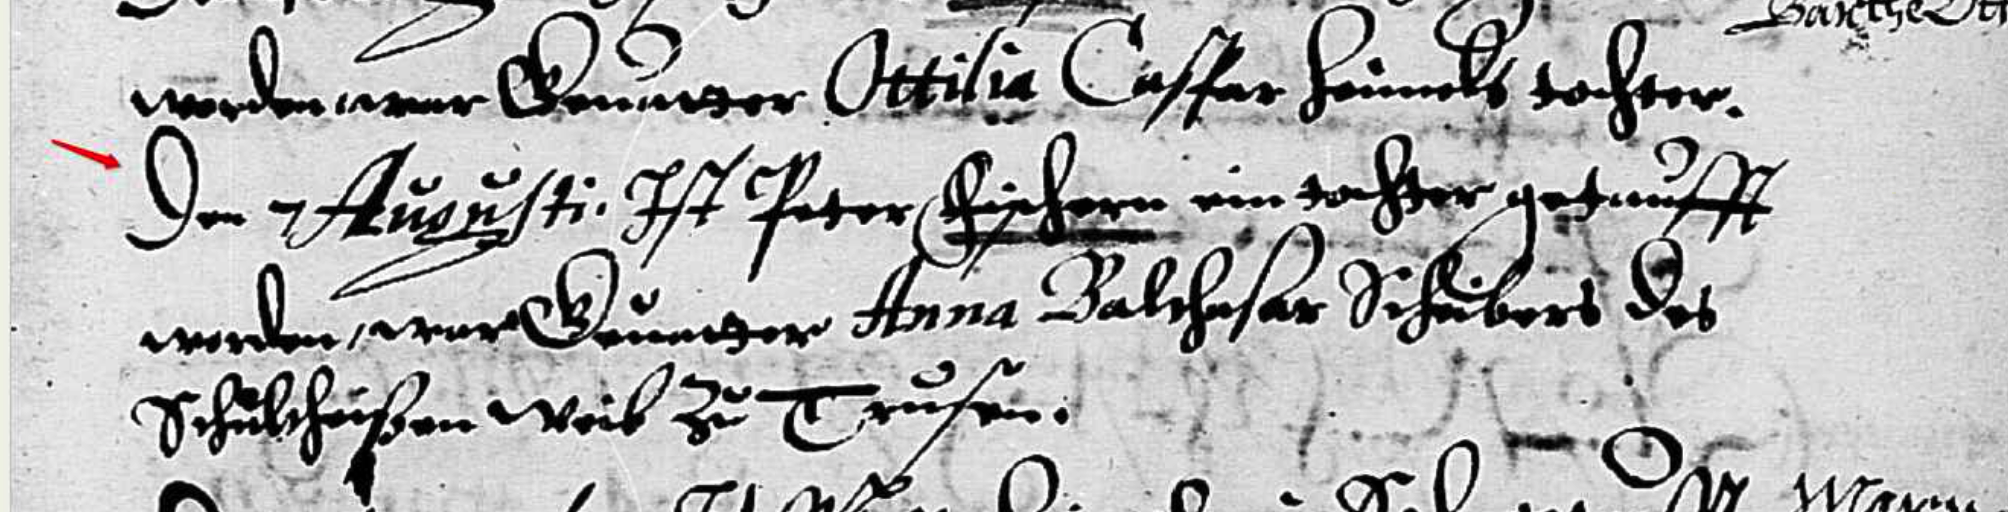 Barthe Ott
worden, war Gevatter Ottilia Casspar Heimels tochter.
Den 7 Augusti. Ist Peter Fischern ein tochter getaufft
worden, war Gevatter Anna Balthasar Scheibers des
Schultheißen weib zu Trusen.
Den Ist